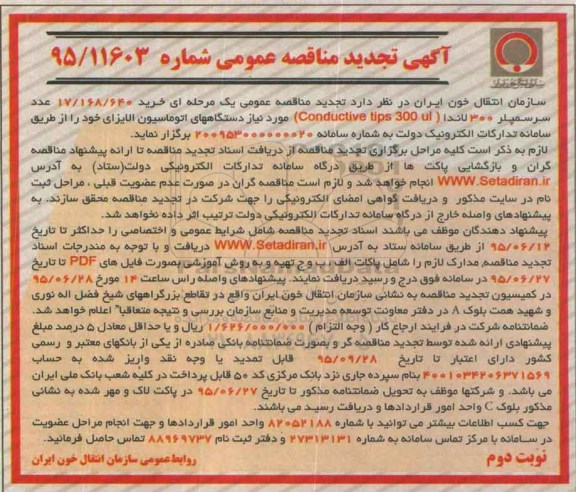 آگهی تجدید مناقصه عمومی شماره ۹۵/۱۱۶۰۳
سازمان انتقال خون ایران در نظر دارد تجدید مناقصه عمومی یک مرحله ای خرید ۱۷/۱۶۸/۶۴۰ عدد
سرسمپلر ۳۰۰ لاندا (Conductive tips 300 ul) مورد نیاز دستگاههای اتوماسیون الایزای خود را از طریق
سامانه تدارکات الکترونیک دولت به شماره سامانه ۲۰۰۹۵۳۰۰۰۰۰۰۰۲۰ برگزار نماید.
لازم به ذکر است کلیه مراحل برگزاری تجدید مناقصه از دریافت اسناد تجدید مناقصه تا ارائه پیشنهاد مناقصه
گران و بازگشایی پاکت ها از طریق درگاه سامانه تدارکات الکترونیکی دولت(ستاد) به آدرس
WWW.Setadiran.ir انجام خواهد شد و لازم است مناقصه گران در صورت عدم عضویت قبلی ، مراحل ثبت
نام در سایت مذکور و دریافت گواهی امضای الکترونیکی را جهت شرکت در تجدید مناقصه محقق سازند. به
پیشنهادهای واصله خارج از درگاه سامانه تدارکات الکترونیکی دولت ترتیب اثر داده نخواهد شد.
پیشنهاد دهندگان موظف می باشند اسناد تجدید مناقصه شامل شرایط عمومی و اختصاصی را حداکثر تا تاریخ
۹۵/۰۶/۱۲ از طریق سامانه ستاد به آدرس WWW.Setadiran.ir دریافت و با توجه به مندرجات اسناد
تجدید مناقصه، مدارک لازم را شامل پاکات الف ب و ج تهیه و به روش آموزشی بصورت فایل های PDF تا تاریخ
۹۵/۰۶/۲۷ در سامانه فوق درج و رسید دریافت نمایند. پیشنهادهای واصله راس ساعت ۱۴ مورخ ۹۵/۰۶/۲۸
در کمیسیون تجدید مناقصه به نشانی سازمان انتقال خون ایران واقع در تقاطع بزرگراههای شیخ فضل اله نوری
و شهید همت بلوک A در دفتر معاونت توسعه مدیریت و منابع سازمان بررسی و نتیجه متعاقبا" اعلام خواهد شد.
ضمانتنامه شرکت در فرایند ارجاع کار ( وجه التزام ) ۱/۶۲۶/۰۰۰/۰۰۰ ریال و یا حداقل معادل ۵ درصد مبلغ
پیشنهادی ارائه شده توسط تجدید مناقصه گر و بصورت ضمانتنامه بانکی صادره از یکی از بانکهای معتبر و رسمی
کشور دارای اعتبار تا تاریخ ۹۵/۰۹/۲۸ قابل تمدید یا وجه نقد واریز شده به حساب
۴۰۰۱۰۳۴۲۰۶۳۷۱۵۶۹ بنام سپرده جاری نزد بانک مرکزی کد ۵۰ قابل پرداخت در کلیه شعب بانک ملی ایران
می باشد. و شرکتها موظف به تحویل ضمانتنامه مذکور تا تاریخ ۹۵/۰۶/۲۷ در پاکت لاک و مهر شده به نشانی
مذکور بلوک C واحد امور قراردادها و دریافت رسید می باشند.
جهت کسب اطلاعات بیشتر می توانید با شماره ۸۲۰۵۲۱۸۸ واحد امور قراردادها و جهت انجام مراحل عضویت
در سامانه با مرکز تماس سامانه به شماره ۲۷۳۱۳۱۳۱ و دفتر ثبت نام ۸۸۹۶۹۷۳۷ تماس حاصل فرمایند.
نوبت دوم
روابط عمومی سازمان انتقال خون ایران